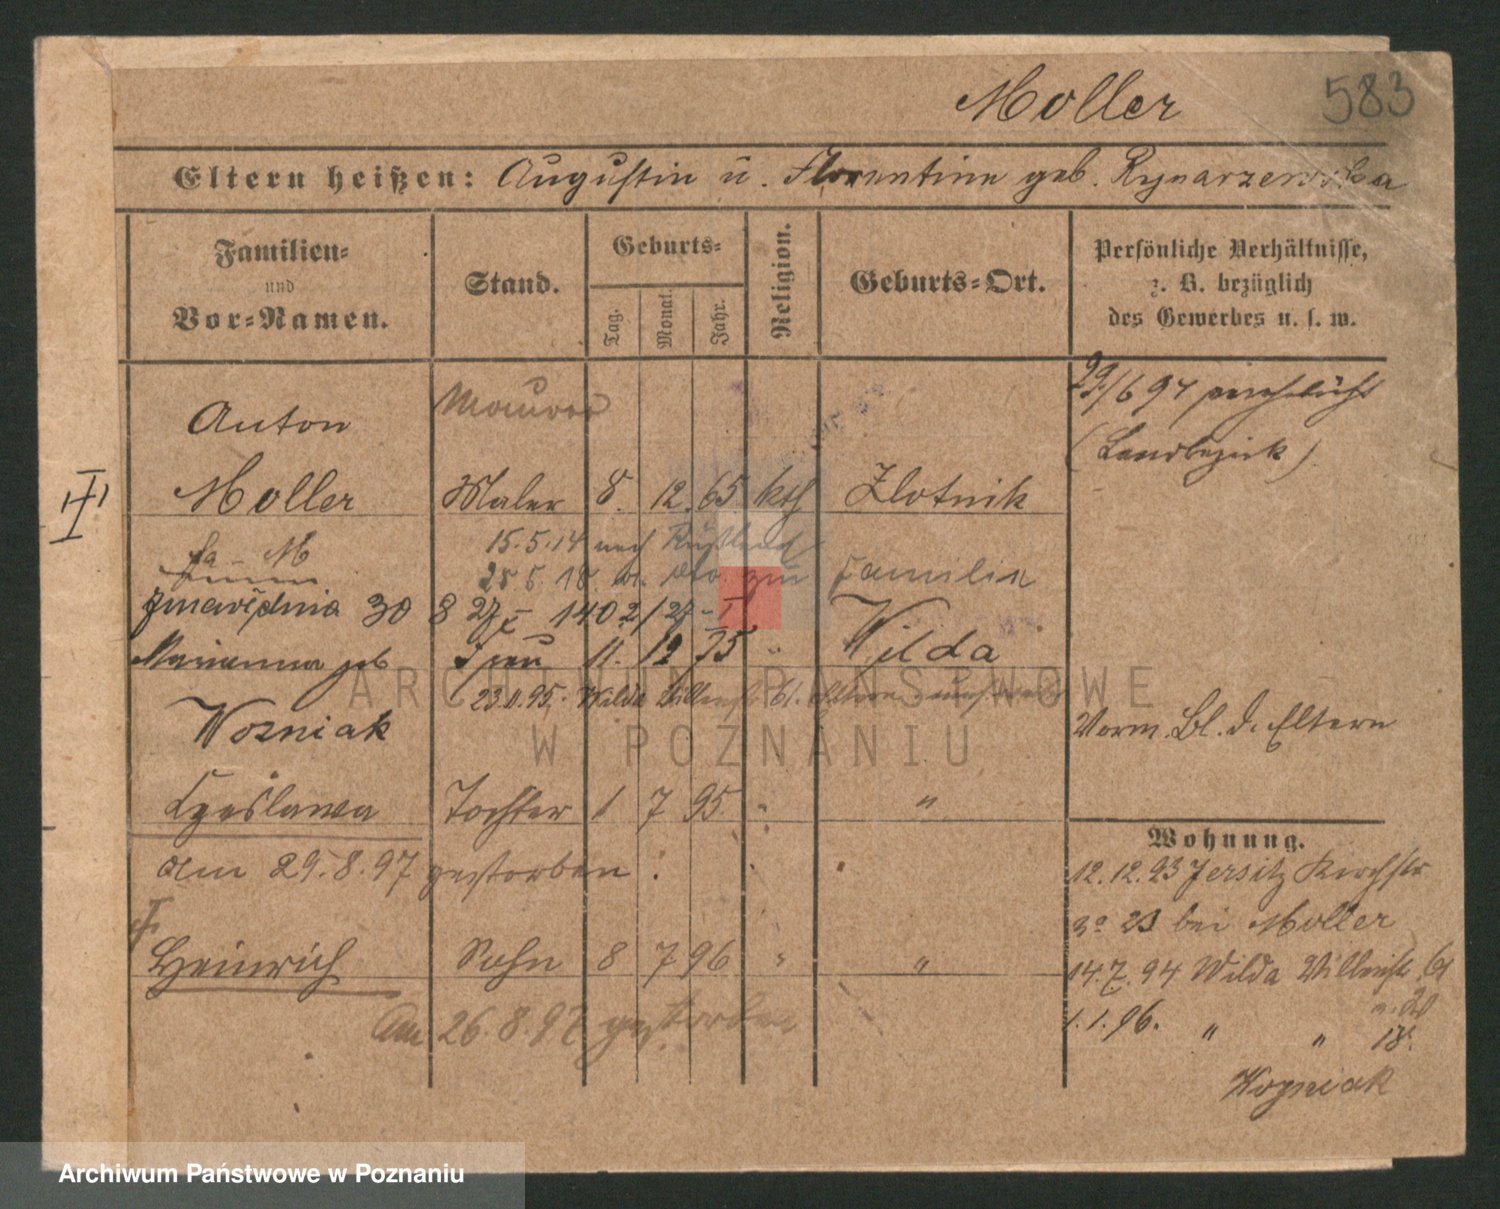 Moller
583
Eltern heißen: Augustin u. Florentine geb. Rynarzewska
Familien-
und
Vor-Namen.
Stand.
Geburts-
Tag.
Monat.
Jahr.
Religion.
Geburts-Ort.
Persönliche Verhältnisse,
z. B. bezüglich
des Gewerbes u. s. w.
Maurer
29/6 97
(Landbezirk)
Anton
Moller Maler 8. 12. 65 kth Zlotnik
15.5.14 nach
25 5. 18 zur Familie
30 8 27 14
Marianna geb Frau 11. 12 75 " Wilda
23.11.95. Wilda
Wozniak
Vorm. Bl. d. Eltern
Czeslawa Tochter 1 7 95. " "
am 29.8.97 gestorben.
Heinrich Sohn 8 7 96 " "
Am 26.8.97 gestorben
Wohnung.
12.12.93 Jersitz Kirchstr
23 bei Moller
14.7.94 Wilda 61
1.1.96. " " 18.
Wozniak
ARCHIWUM PAŃSTWOWE
W POZNANIU
Archiwum Państwowe w Poznaniu